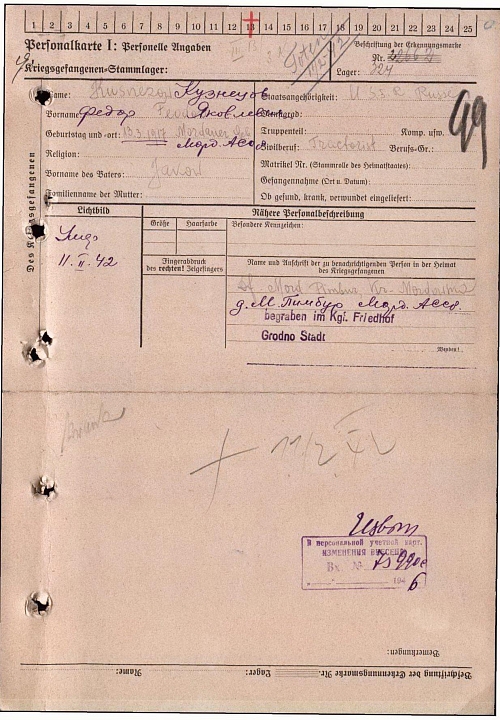 1 2 3 4 5 6 7 8 9 10 11 12 13 14 15 16 17 18 19 20 21 22 23 24 25
Personalkarte I: Personelle Angaben
Beschriftung der Erkennungsmarke
Nr.
Kriegsgefangenen-Stammlager:
Lager: 324
Name: Kusnezow Кузнецов
Staatsangehörigkeit: U S S R Russe
Vorname: Федор Яковлевич
Dienstgrad:
Geburtstag und -ort: 13.3.1917
Truppenteil: Komp. usw.
Морд. АССР
Zivilberuf: Tractorist Berufs-Gr.:
99
Religion:
Matrikel Nr. (Stammrolle des Heimatstaates):
Vorname des Vaters: Jakow
Gefangennahme (Ort u. Datum):
Familienname der Mutter:
Ob gesund, krank, verwundet eingeliefert:
Des Kriegsgefangenen
Lichtbild
Nähere Personalbeschreibung
Größe Haarfarbe Besondere Kennzeichen:
Умер
11. II. 42
Fingerabdruck
des rechten! Zeigefingers
Name und Anschrift der zu benachrichtigenden Person in der Heimat
des Kriegsgefangenen
д. М. Пимбур Морд. АССР.
begraben im Kgf. Friedhof
Grodno Stadt
Wenden!
+ 11/2 42
В персональной учетной карт.
ИЗМЕНЕНИЯ ВНЕСЕНЫ
Вх. №
194 6
Bemerkungen:
Name: Lager: Beschriftung der Erkennungsmarke Nr.